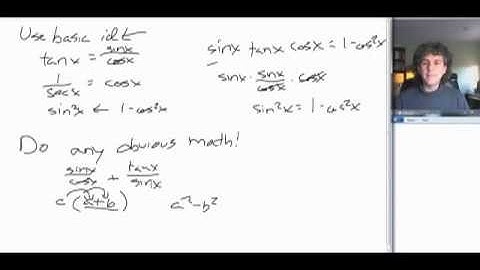 Use basic idt
tanx = sinx/cosx
1/secx = cosx
sin²x ← 1-cos²x
sinx tanx cosx = 1-cos²x
sinx · sinx/cosx · cosx
sin²x = 1-cos²x
Do any obvious math!
sinx/cosx + tanx/sinx
c(a+b) a²-b²